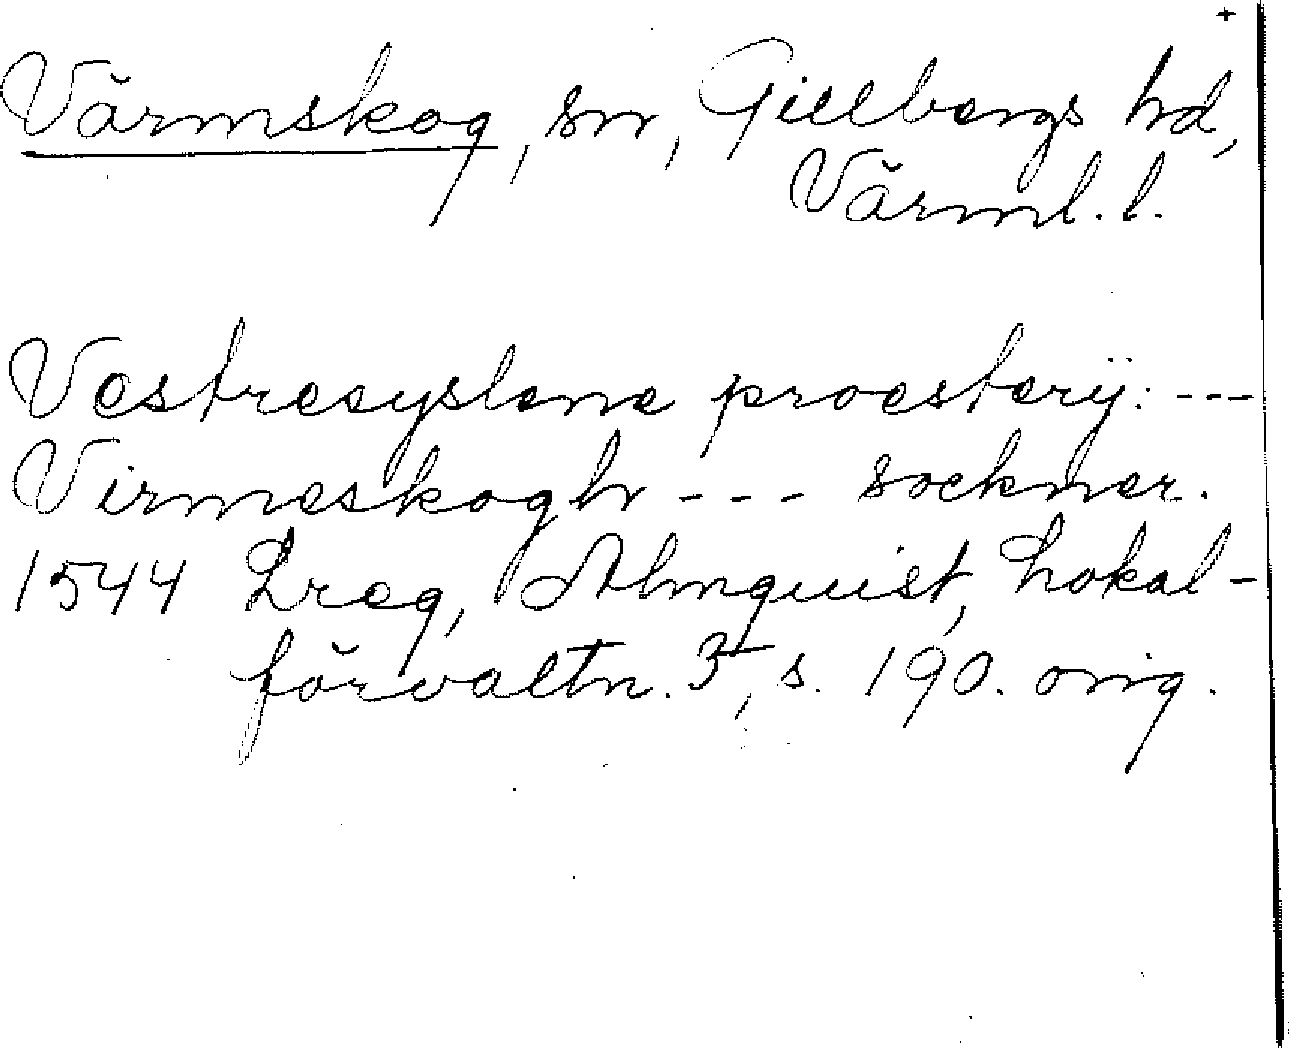 +
Värmskog, sn, Gillbergs hd,
Värml. l.
Vestresyslene proesterÿ: ---
Virmeskogh --- sockner.
1544 Lreg, Almquist, Lokal-
förvaltn. 3, s. 190. orig.